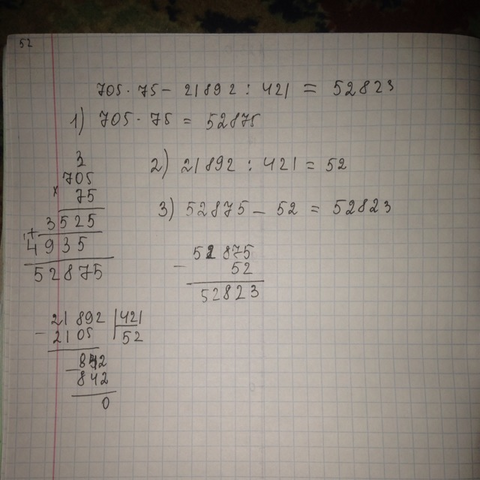 52
705 · 75 - 21892 : 421 = 52823
1) 705 · 75 = 52875
3
705
× 75
3525
+
4935
52875
2) 21892 : 421 = 52
3) 52875 - 52 = 52823
52875
- 52
52823
21892 | 421
- 2105 | 52
842
- 842
0